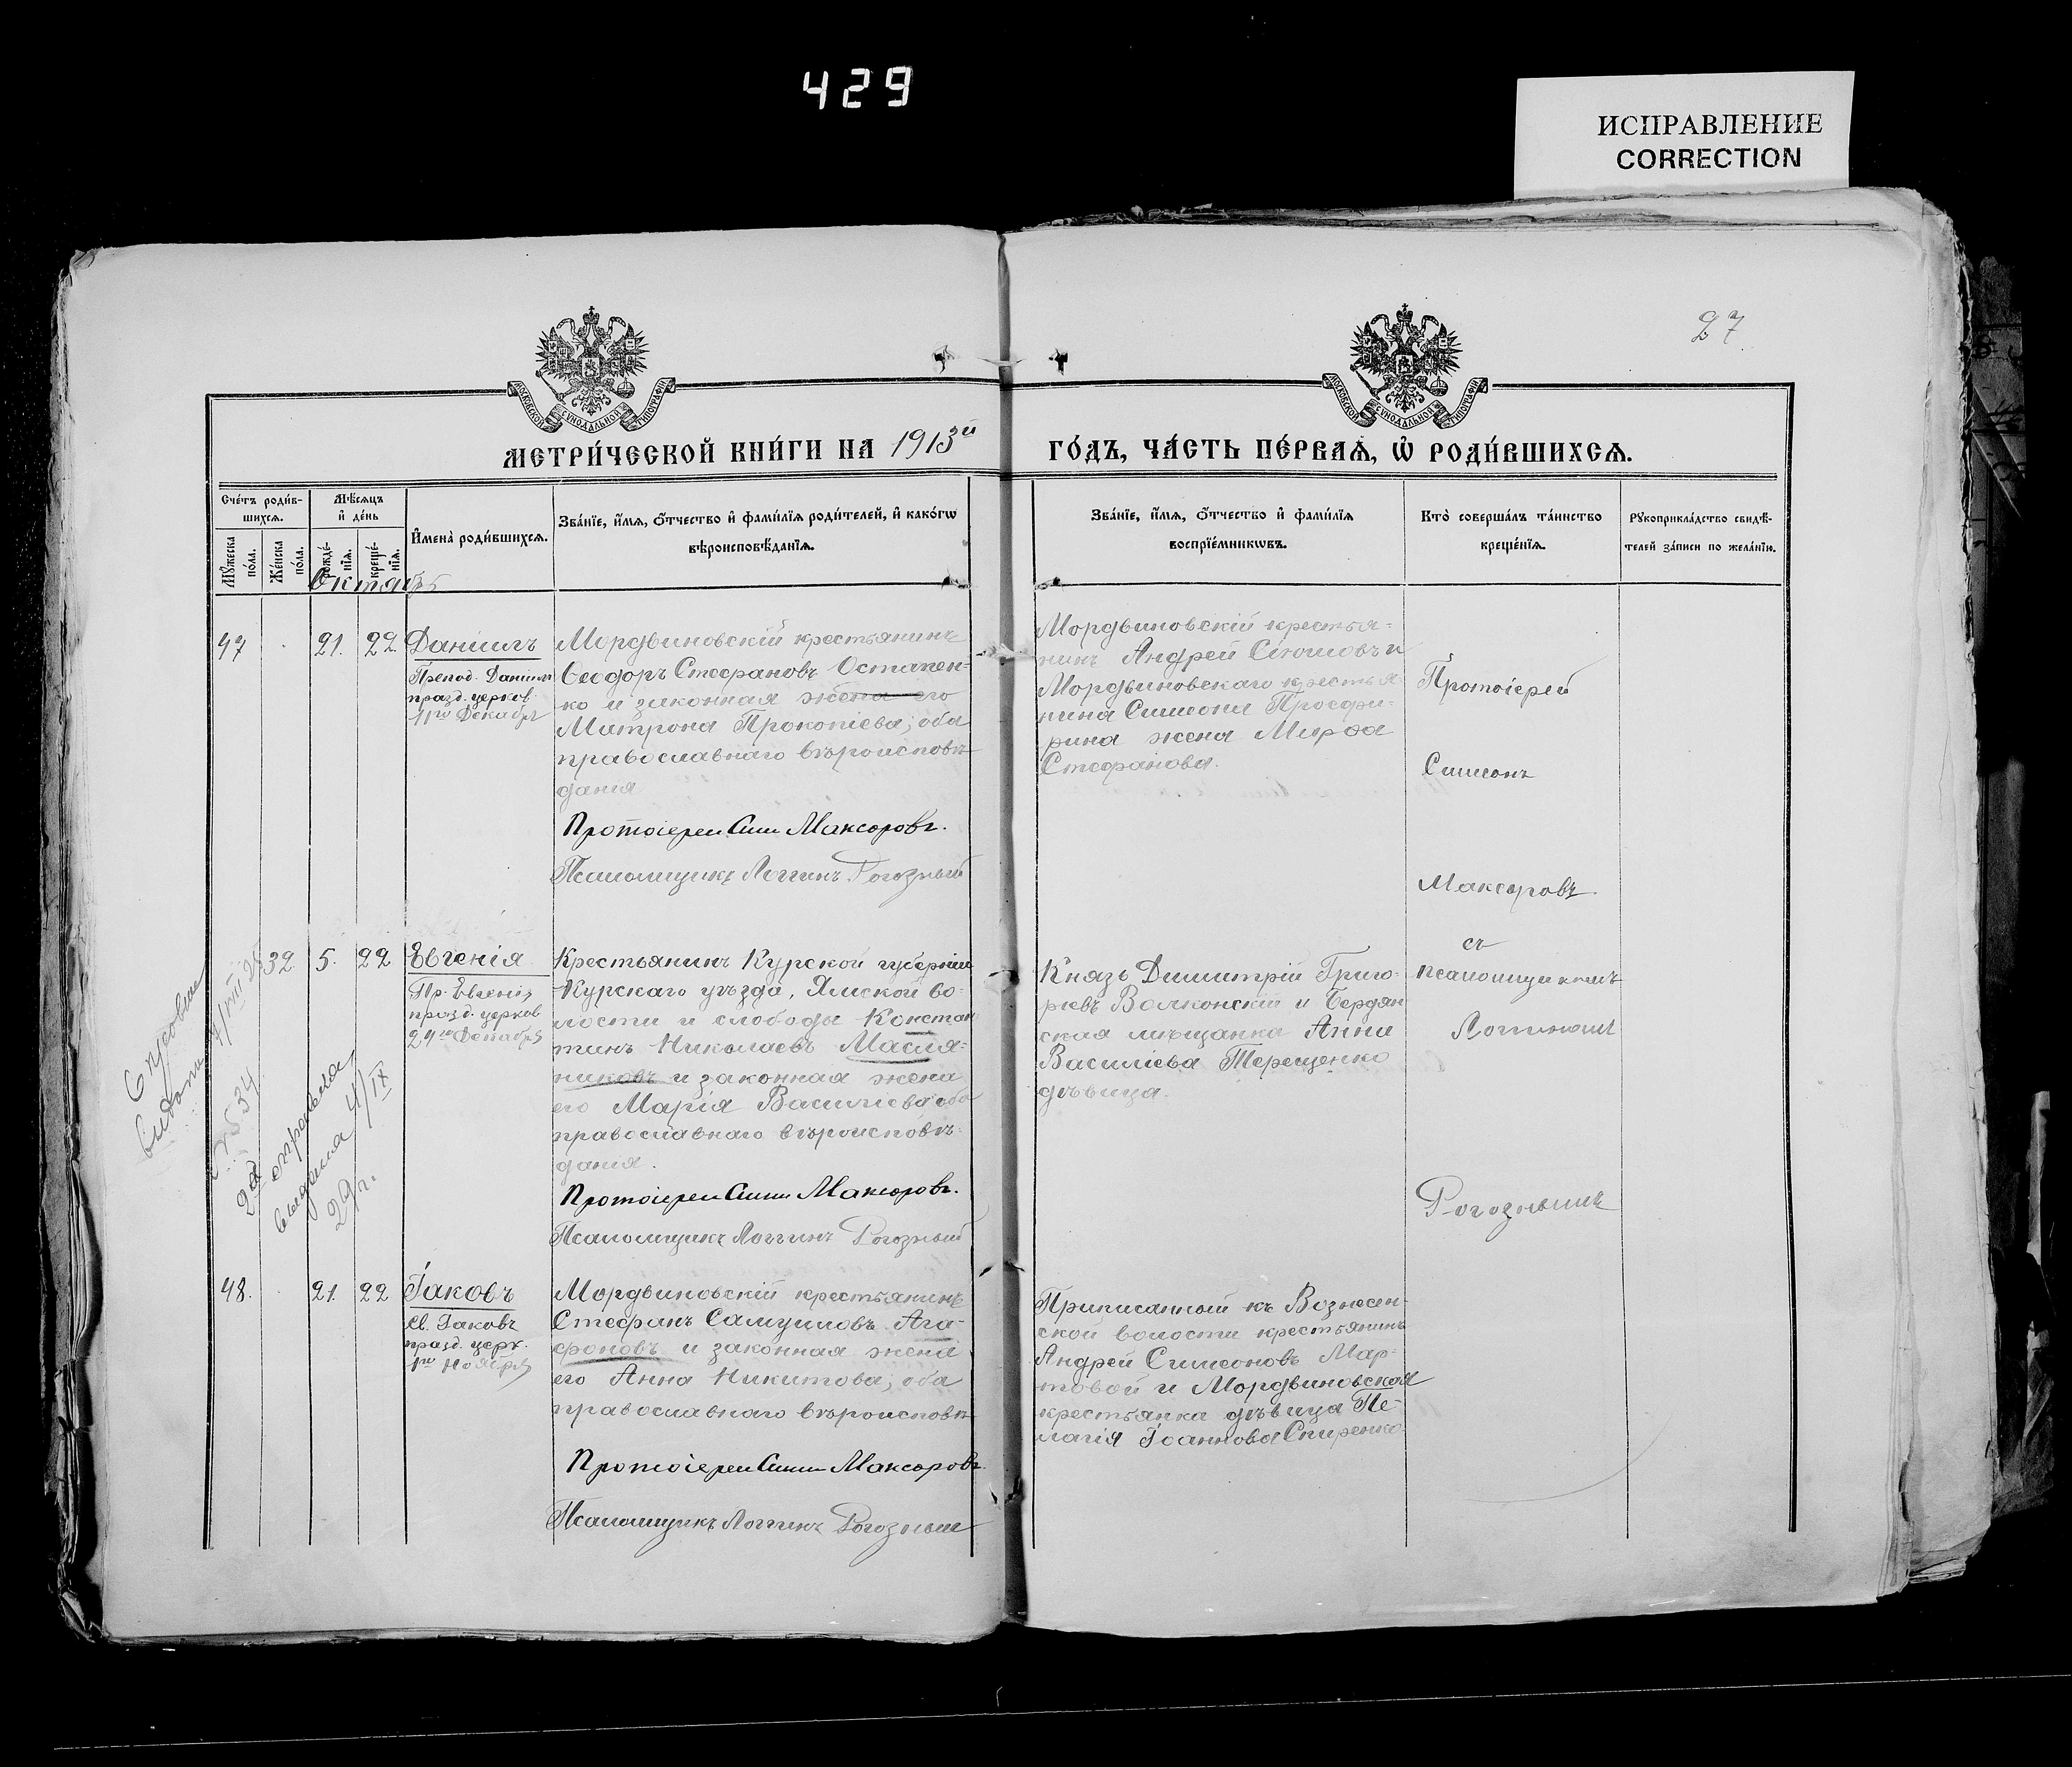 429
ИСПРАВЛЕНИЕ
CORRECTION
27
МОСКОВСКОЙ СѴНОДАЛЬНОЙ ТИПОГРАФІИ
МОСКОВСКОЙ СѴНОДАЛЬНОЙ ТИПОГРАФІИ
МЕТРИ́ЧЕСКОЙ КНИ́ГИ НА 1913й ГО́ДЪ, ЧА́СТЬ ПЕ́РВАѦ, Ѡ҆ РОДИ́ВШИХСѦ.
Сче́тъ роди́в-
шихсѧ.
Мꙋ́жеска по́ла.
Же́нска по́ла.
Мѣ́сѧцъ
и҆ де́нь
рожде́-нїѧ.
креще́-нїѧ.
И҆мена̀ роди́вшихсѧ.
Зва́нїе, и҆́мѧ, ѻ҆́тчество и҆ фами́лїѧ роди́телей, и҆ како́гѡ
вѣроисповѣ́данїѧ.
Зва́нїе, и҆́мѧ, ѻ҆́тчество и҆ фами́лїѧ
воспрїе́мникѡвъ.
Кто̀ соверша́лъ та́инство
креще́нїѧ.
Рꙋкоприкла́дство свидѣ́-
телей за́писи по жела́нїю.
Октябрь
47 21. 22 Даніилъ
Препод. Даніил
празд. церков.
11го Декабр
Мордвиновскій крестьянинъ
Ѳеодоръ Стефановъ Остапен-
ко и законная жена его
Матрона Прокопіева; оба
православнаго вѣроисповѣ-
данія
Протоіерей Сим Максоровъ.
Псаломщикъ Логгинъ Рогозный
Мордвиновскій крестья-
нинъ Андрей
Мордвиновскаго крестья-
нина Симеона Просфи-
рина жена Марфа
Стефанова.
Протоіерей
Симеонъ
Максоровъ
съ
псаломщикомъ
Логгиномъ
Рогознымъ
32 5. 22 Евгенія
Пр. Евгенія
празд. церков
24го Декабря
Крестьянинъ Курской губерніи
Курскаго уѣзда, Ямской во-
лости и слободы Констан
тинъ Николаевъ Масля-
никовъ и законная жена
его Марія Васильева оба
православнаго вѣроисповѣ-
данія.
Протоіерей Сим Максоровъ.
Псаломщикъ Логгинъ Рогозный
Князь Димитрій Григо-
рьевъ Волконскій и Бердян
ская мѣщанка Анна
Василіева Терещенко
дѣвица.
выдана 7/VIII 25
2я
выдана 4/IX
29 г.
48. 21. 22 Іаковъ
Св. Іаковъ
празд. церк.
1го Ноября
Мордвиновскій крестьянинъ
Стефанъ Самуиловъ Ага-
фоновъ и законная жена
его Анна Никитова; оба
православнаго вѣроисповѣ-
Протоіерей Сим Максоровъ.
Псаломщикъ Логгинъ Рогозный
Приписанный къ Вознесен-
ской волости крестьянинъ
Андрей Симеоновъ Мар-
товой и Мордвиновская
крестьянка дѣвица Пе-
лагія Іоаннова Спиренко